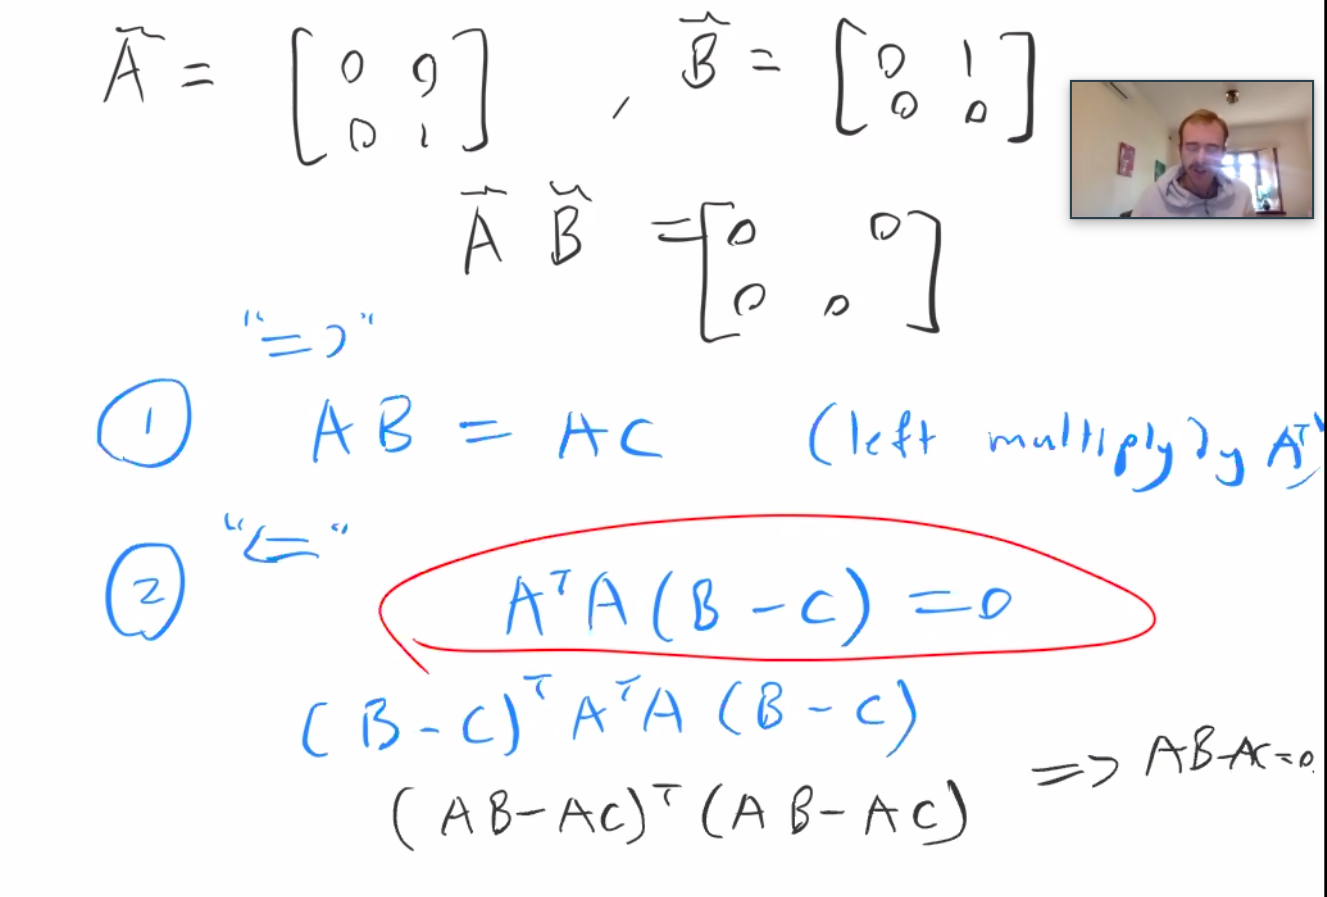 Ã = [ 0 0 , B̃ = [ 0 1
0 1 ] 0 0 ]
Ã B̃ = [ 0 0
0 0 ]
"=>"
① AB = AC (left multiply by Aᵀ)
"<="
② AᵀA(B - C) = 0
(B - C)ᵀ AᵀA (B - C)
(AB - AC)ᵀ (AB - AC) => AB - AC = 0.